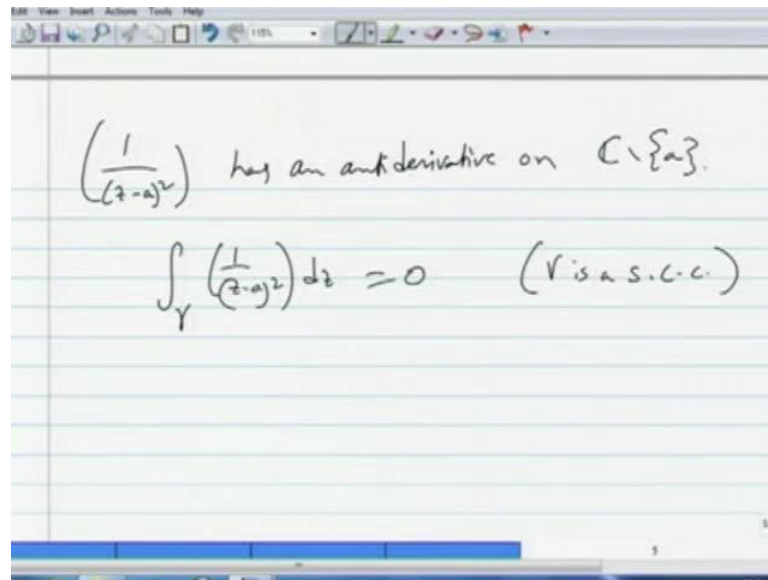 Edit View Insert Actions Tools Help
115%
(1/(z-a)²) has an antiderivative on ℂ\{a}.
∫_γ (1/(z-a)²) dz = 0 (γ is a s.c.c.)
5